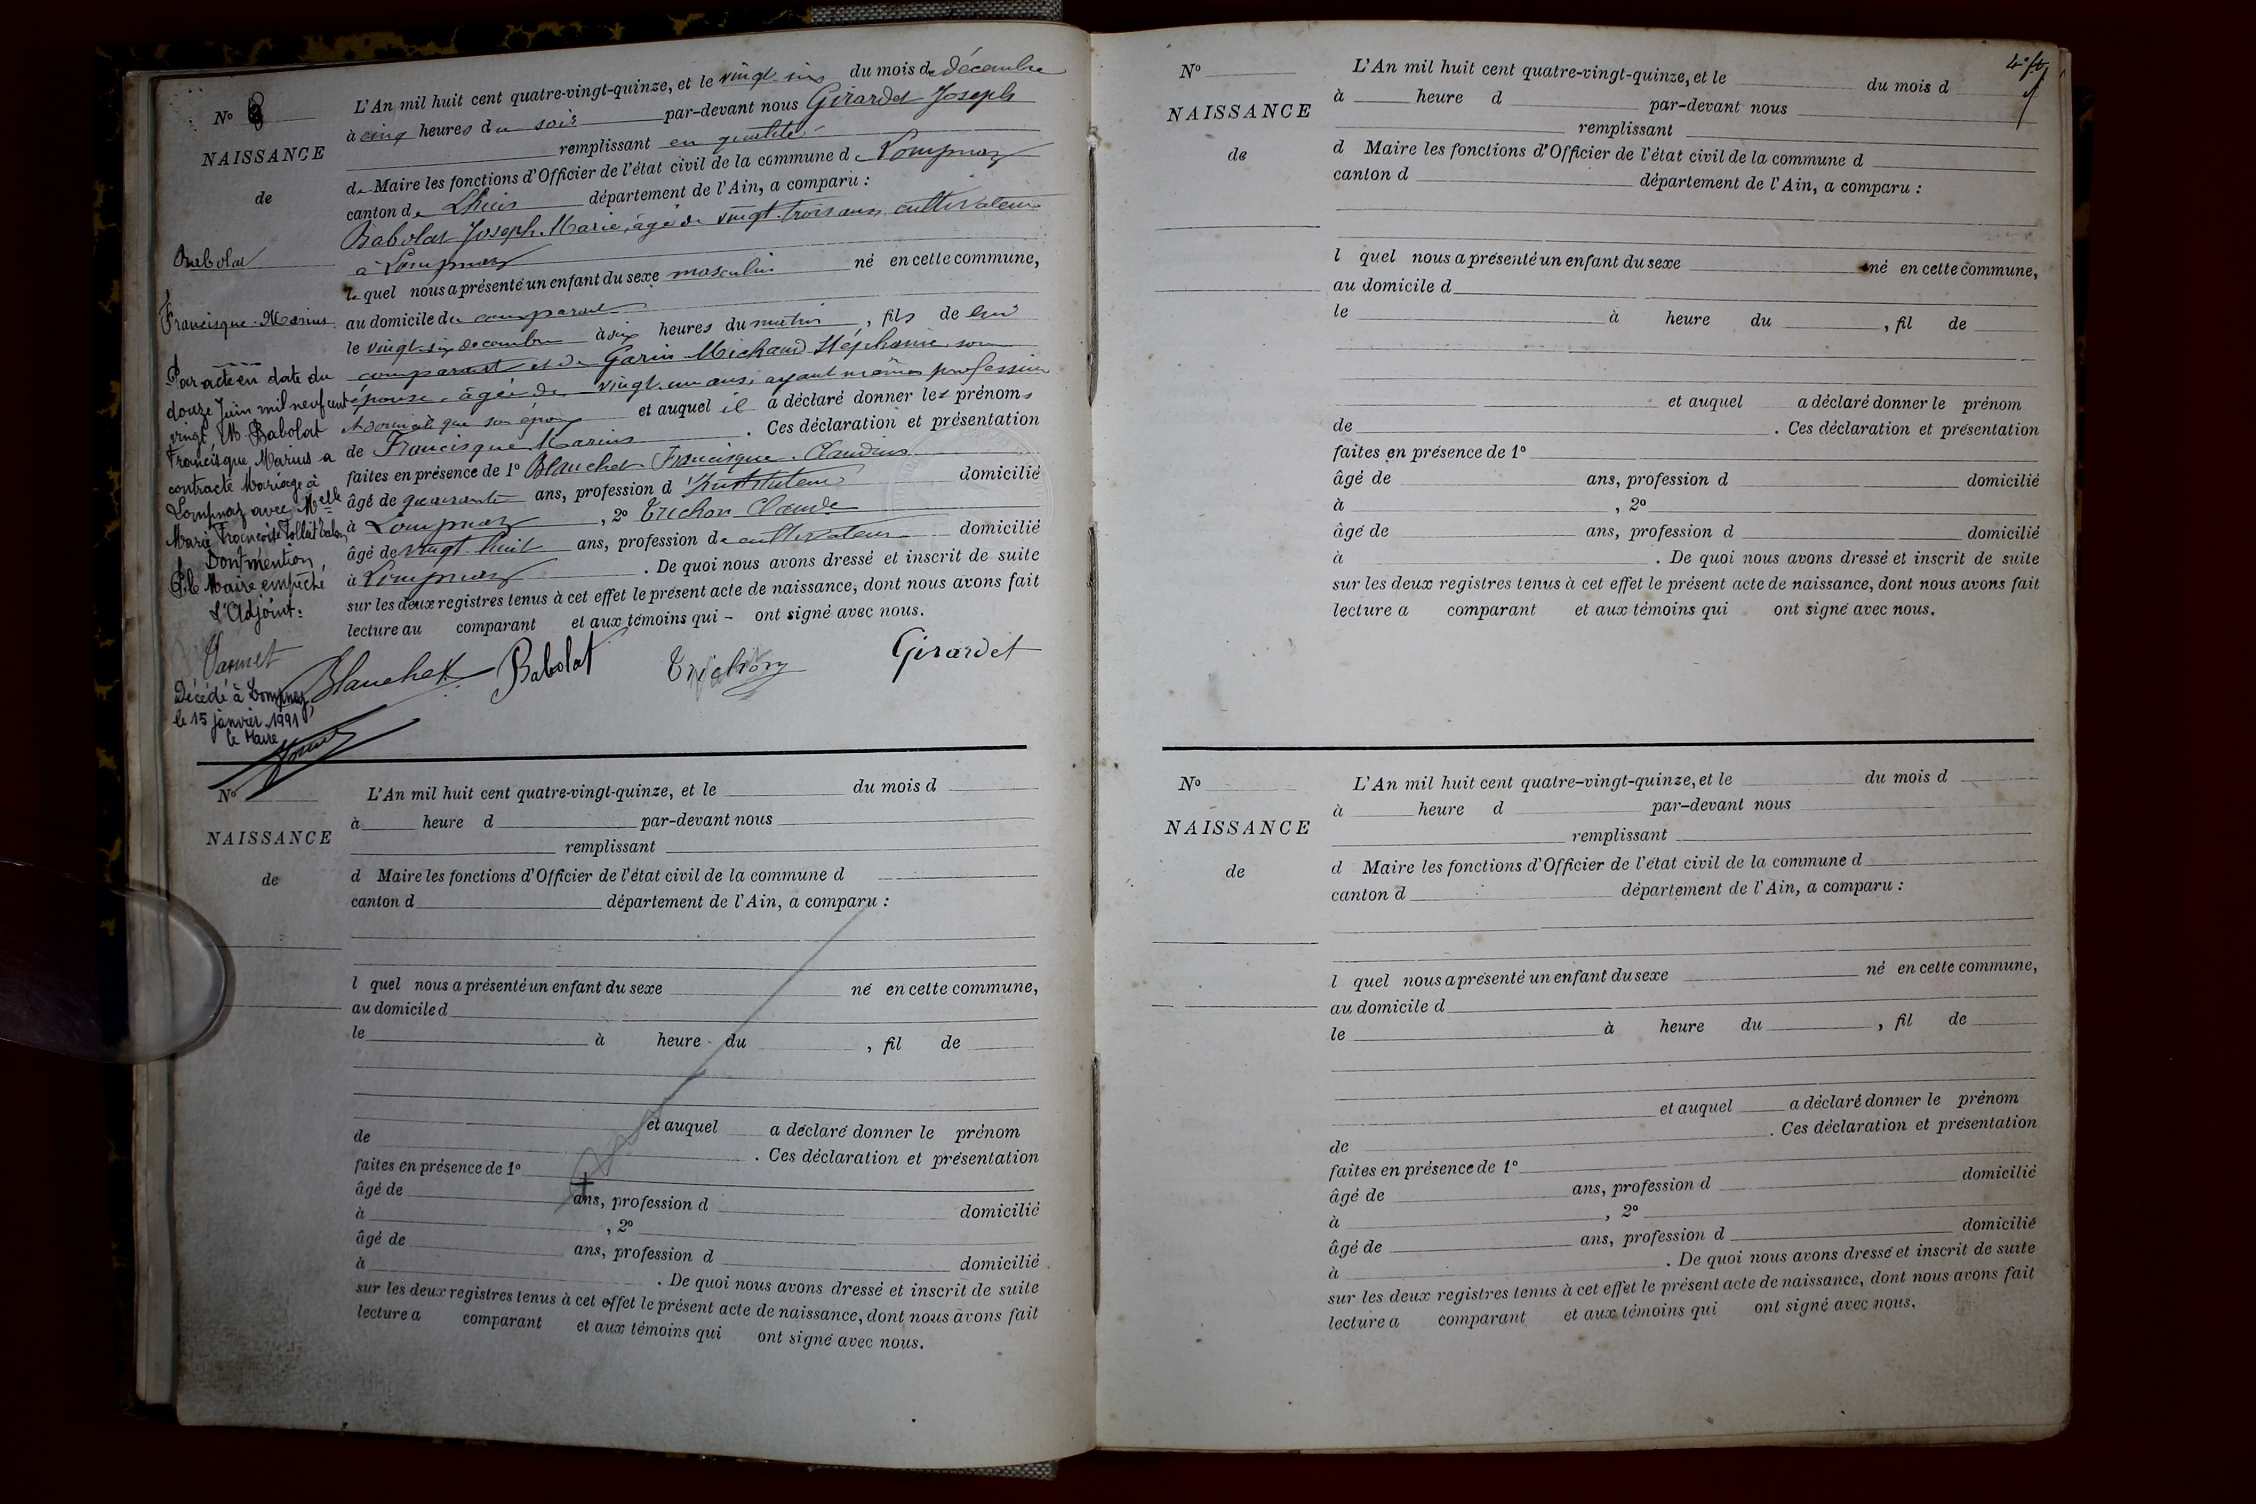 N° 8
NAISSANCE
de
Babolat
Francisque-Marius
L'An mil huit cent quatre-vingt-quinze, et le vingt-six du mois de décembre
à cinq heures du soir par-devant nous Girardet Joseph
remplissant en qualité
de Maire les fonctions d'Officier de l'état civil de la commune de Lompnaz
canton de Lhuis département de l'Ain, a comparu :
Babolat Joseph-Marie, âgé de vingt-trois ans, cultivateur
à Lompnaz
le quel nous a présenté un enfant du sexe masculin né en cette commune,
au domicile du comparant
le vingt-six décembre à six heures du matin, fils de lui
comparant et de Garin-Michaud Stéphanie son
épouse, âgée de vingt-un ans, ayant même profession
et domicile que son époux et auquel il a déclaré donner les prénoms
de Francisque Marius. Ces déclaration et présentation
faites en présence de 1° Blanchet Francisque-Claudius
âgé de quarante ans, profession d'Instituteur domicilié
à Lompnaz, 2° Trichon Claude
âgé de vingt-huit ans, profession de cultivateur domicilié
à Lompnaz. De quoi nous avons dressé et inscrit de suite
sur les deux registres tenus à cet effet le présent acte de naissance, dont nous avons fait
lecture au comparant et aux témoins qui - ont signé avec nous.
Blanchet Babolat Trichon Girardet
Par acte en date du
douze Juin mil neuf cent
vingt, M. Babolat
Francisque Marius a
contracté Mariage à
Lompnaz avec Melle
Marie Françoise Tollet
Dont mention,
P. le Maire empêché
L'Adjoint:
Décédé à Lompnaz,
le 15 janvier 1991
le Maire
N°
NAISSANCE
de
L'An mil huit cent quatre-vingt-quinze, et le du mois d
à heure d par-devant nous
remplissant
d Maire les fonctions d'Officier de l'état civil de la commune d
canton d département de l'Ain, a comparu :
l quel nous a présenté un enfant du sexe né en cette commune,
au domicile d
le à heure du , fil de
et auquel a déclaré donner le prénom
de . Ces déclaration et présentation
faites en présence de 1°
âgé de ans, profession d domicilié
à , 2°
âgé de ans, profession d domicilié
à . De quoi nous avons dressé et inscrit de suite
sur les deux registres tenus à cet effet le présent acte de naissance, dont nous avons fait
lecture a comparant et aux témoins qui ont signé avec nous.
N°
NAISSANCE
de
L'An mil huit cent quatre-vingt-quinze, et le du mois d
à heure d par-devant nous
remplissant
d Maire les fonctions d'Officier de l'état civil de la commune d
canton d département de l'Ain, a comparu :
l quel nous a présenté un enfant du sexe né en cette commune,
au domicile d
le à heure du , fil de
et auquel a déclaré donner le prénom
de . Ces déclaration et présentation
faites en présence de 1°
âgé de ans, profession d domicilié
à , 2°
âgé de ans, profession d domicilié
à . De quoi nous avons dressé et inscrit de suite
sur les deux registres tenus à cet effet le présent acte de naissance, dont nous avons fait
lecture a comparant et aux témoins qui ont signé avec nous.
N°
NAISSANCE
de
L'An mil huit cent quatre-vingt-quinze, et le du mois d
à heure d par-devant nous
remplissant
d Maire les fonctions d'Officier de l'état civil de la commune d
canton d département de l'Ain, a comparu :
l quel nous a présenté un enfant du sexe né en cette commune,
au domicile d
le à heure du , fil de
et auquel a déclaré donner le prénom
de . Ces déclaration et présentation
faites en présence de 1°
âgé de ans, profession d domicilié
à , 2°
âgé de ans, profession d domicilié
à . De quoi nous avons dressé et inscrit de suite
sur les deux registres tenus à cet effet le présent acte de naissance, dont nous avons fait
lecture a comparant et aux témoins qui ont signé avec nous.